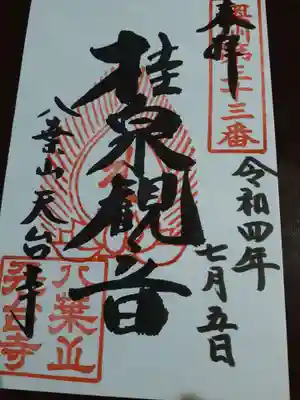 奥州第三十三番
奉拝
令和四年
七月五日
桂泉観音
八葉山天台寺
八葉山
天台寺